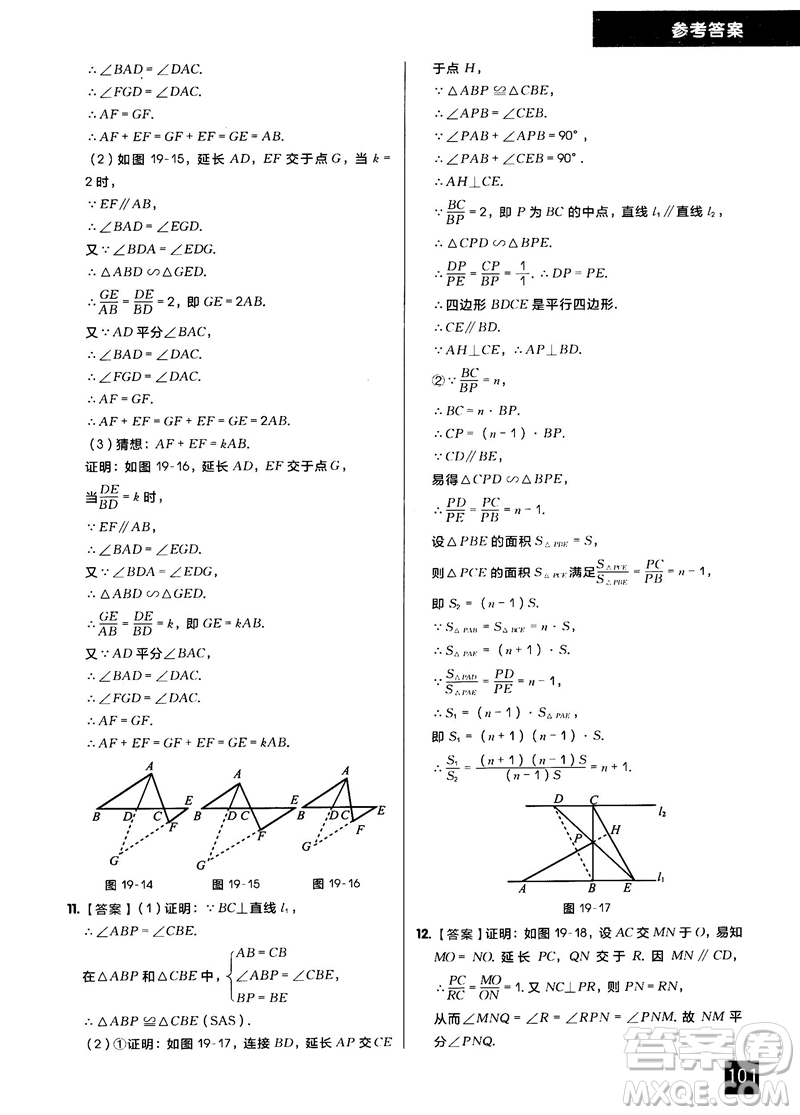 参考答案
∴∠BAD = ∠DAC.
∴∠FGD = ∠DAC.
∴AF = GF.
∴AF + EF = GF + EF = GE = AB.
(2)如图 19-15，延长 AD，EF 交于点 G，当 k =
2 时，
∵EF∥AB，
∴∠BAD = ∠EGD.
又∵∠BDA = ∠EDG.
∴△ABD∽△GED.
∴GE/AB = DE/BD = 2，即 GE = 2AB.
又∵AD 平分∠BAC，
∴∠BAD = ∠DAC.
∴∠FGD = ∠DAC.
∴AF = GF.
∴AF + EF = GF + EF = GE = 2AB.
(3)猜想：AF + EF = kAB.
证明：如图 19-16，延长 AD，EF 交于点 G，
当DE/BD = k 时，
∵EF∥AB，
∴∠BAD = ∠EGD.
又∵∠BDA = ∠EDG，
∴△ABD∽△GED.
∴GE/AB = DE/BD = k，即 GE = kAB.
又∵AD 平分∠BAC，
∴∠BAD = ∠DAC.
∴∠FGD = ∠DAC.
∴AF = GF.
∴AF + EF = GF + EF = GE = kAB.
A A A
B D C E B D C E B D C E
F F F
G G G
图 19-14 图 19-15 图 19-16
11.【答案】(1)证明：∵BC⊥直线 l₁，
∴∠ABP = ∠CBE.
在△ABP 和△CBE 中，{AB = CB
∠ABP = ∠CBE，
BP = BE
∴△ABP≌△CBE(SAS).
(2)①证明：如图 19-17，连接 BD，延长 AP 交 CE
于点 H，
∵△ABP≌△CBE，
∴∠APB = ∠CEB.
∵∠PAB + ∠APB = 90°，
∴∠PAB + ∠CEB = 90°.
∴AH⊥CE.
∵BC/BP = 2，即 P 为 BC 的中点，直线 l₁∥直线 l₂，
∴△CPD∽△BPE.
∴DP/PE = CP/BP = 1/1. ∴DP = PE.
∴四边形 BDCE 是平行四边形.
∴CE∥BD.
∵AH⊥CE，∴AP⊥BD.
②∵BC/BP = n，
∴BC = n · BP.
∴CP = (n - 1) · BP.
∵CD∥BE，
易得△CPD∽△BPE，
∴PD/PE = PC/PB = n - 1.
设△PBE 的面积 S△PBE = S，
则△PCE 的面积 S△PCE 满足S△PCE/S△PBE = PC/PB = n - 1，
即 S₂ = (n - 1)S.
∵S△PAB = S△BCE = n · S，
∴S△PAE = (n + 1) · S.
∵S△PAD/S△PAE = PD/PE = n - 1，
∴S₁ = (n - 1) · S△PAE，
即 S₁ = (n + 1)(n - 1) · S.
∴S₁/S₂ = (n + 1)(n - 1)S/(n - 1)S
D C l₂
P H
A B E l₁
图 19-17
12.【答案】证明：如图 19-18，设 AC 交 MN 于 O，易知
MO = NO. 延长 PC，QN 交于 R. 因 MN∥CR，
∴PC/RC = MO/ON = 1. 又 NC⊥PR，则 PN = RN，
从而∠MNQ = ∠R = ∠RPN = ∠PNM. 故 NM 平
分∠PNQ.
答案圈
MXQE.COM
101